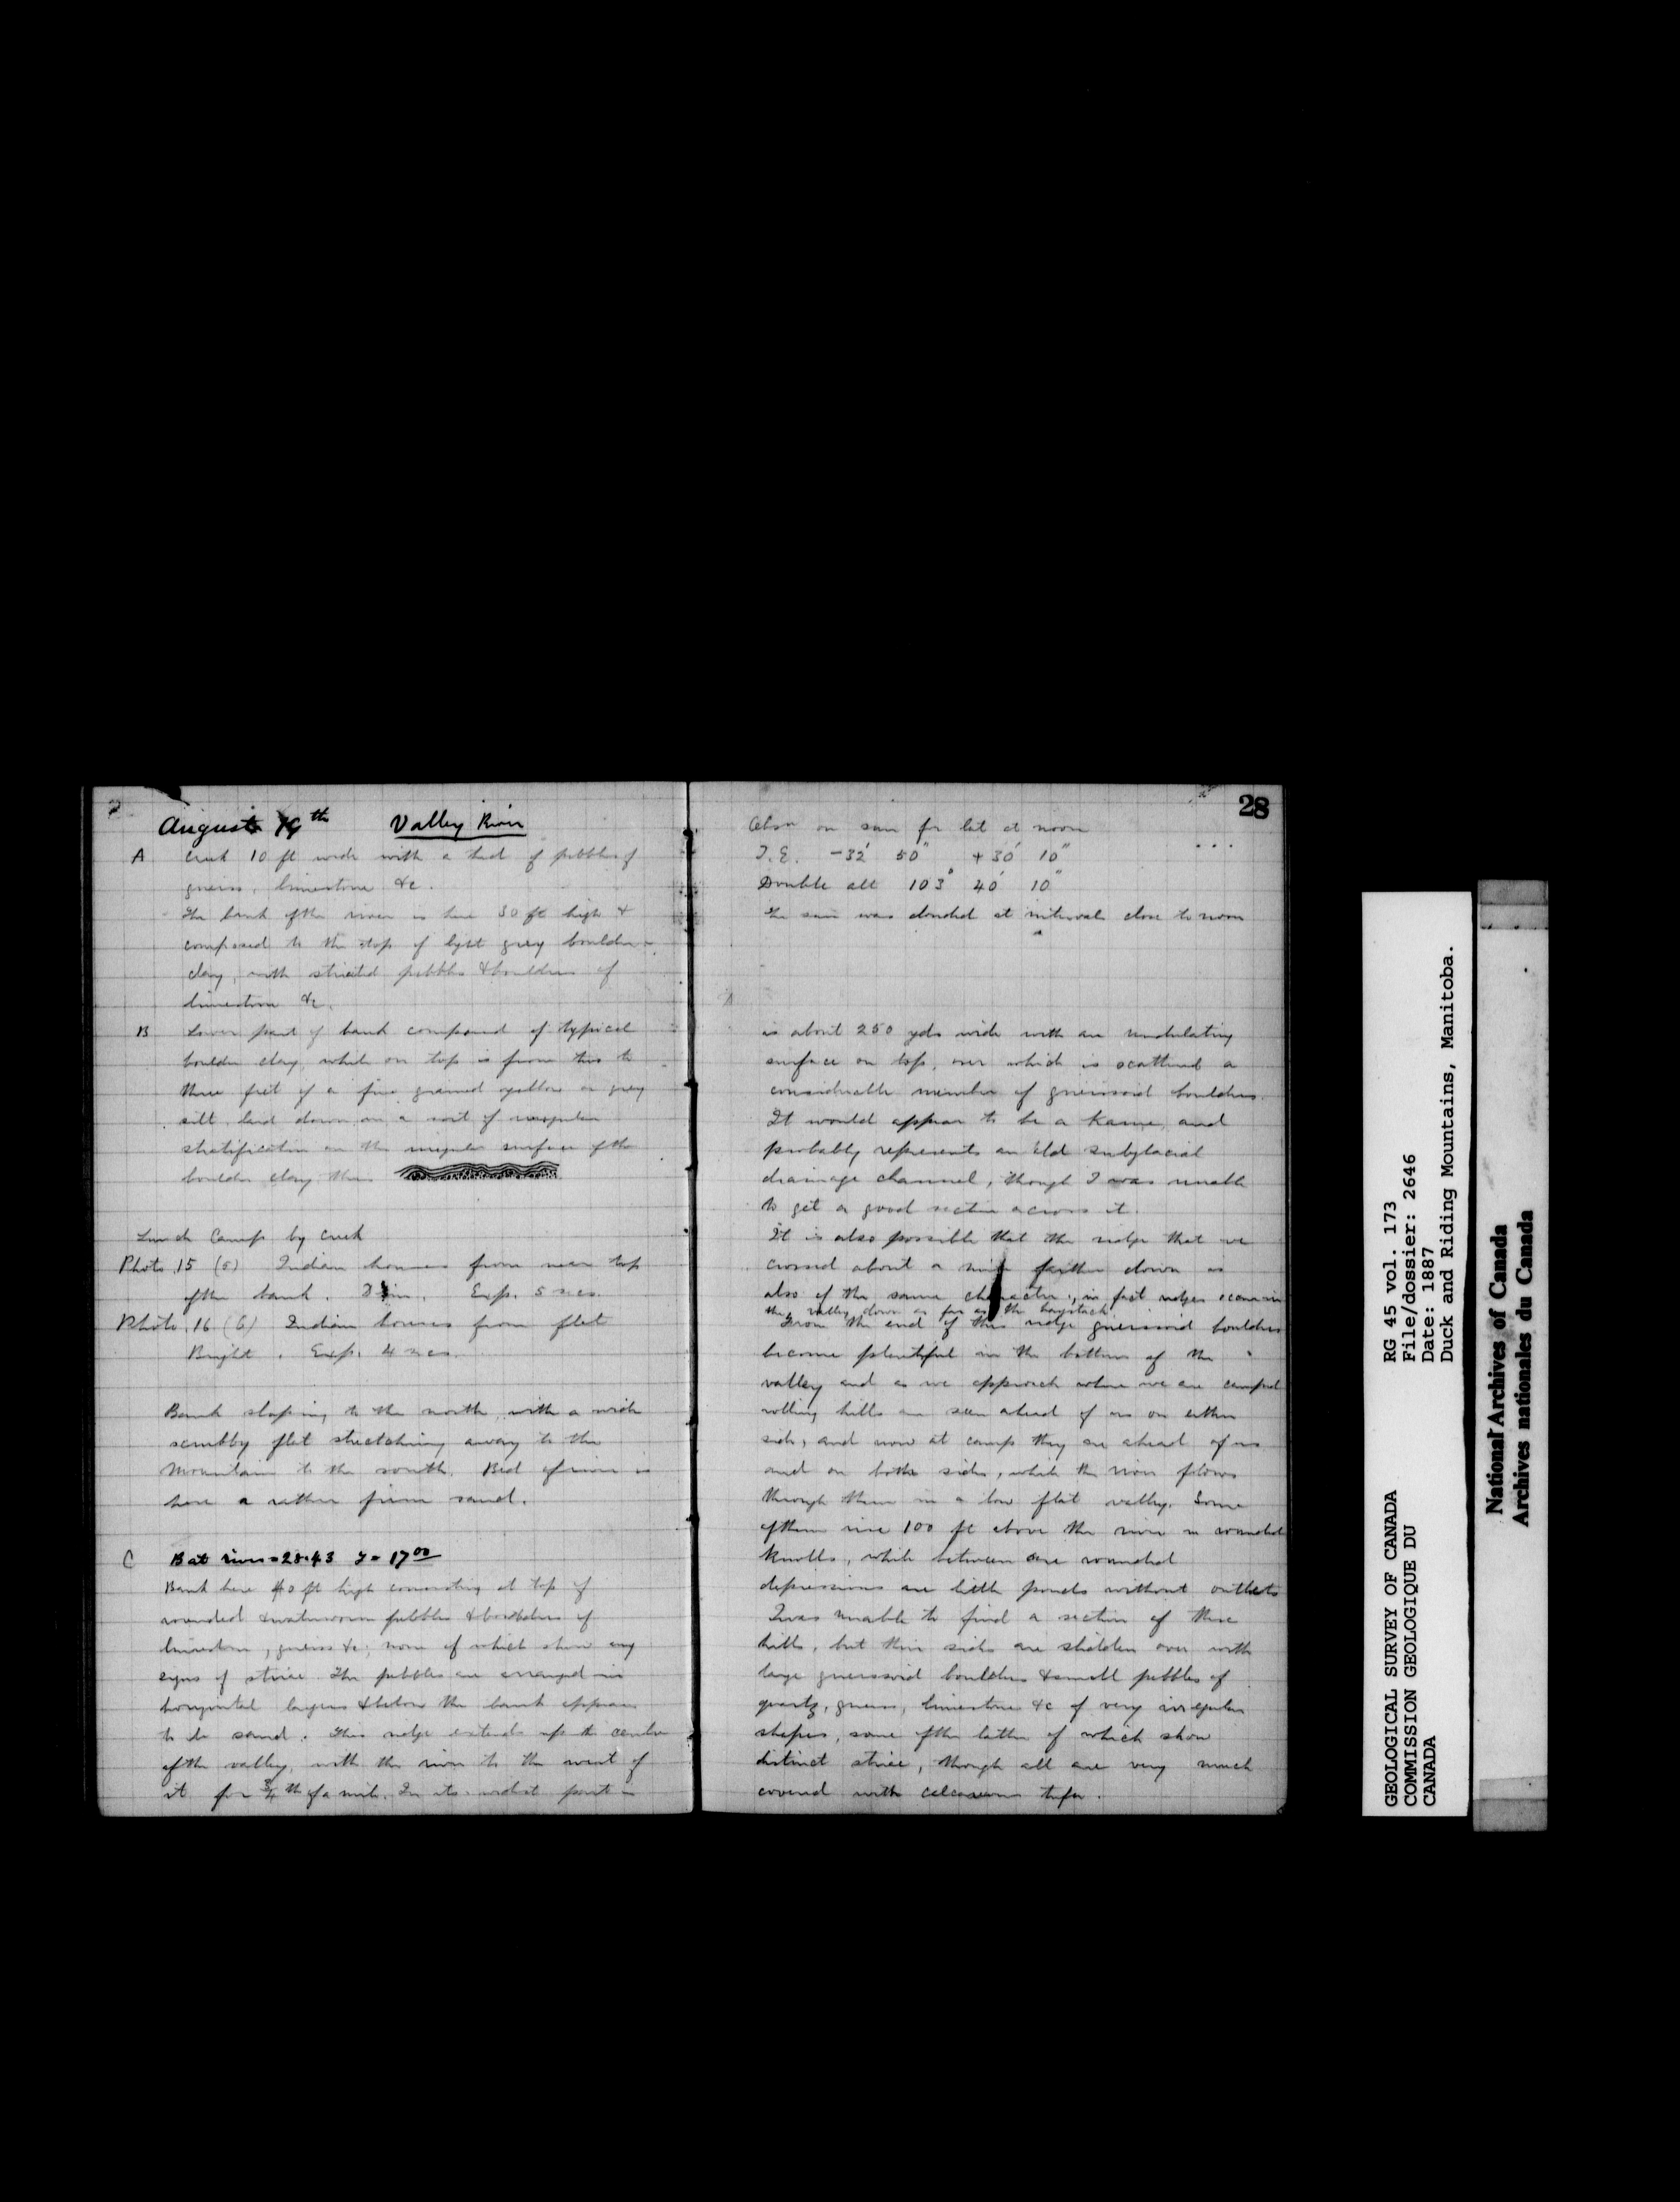 August 19th Valley River
A Creek 10 ft wide with a bed of pebbles of
gneiss, limestone &c.
The bank of the river is here 30 ft high &
composed to the top of light grey boulder-
clay, with striated pebbles & boulders of
limestone &c.
B Lower part of bank composed of typical
boulder clay, while on top is from two to
three feet of a fine grained yellow or grey
silt laid down on a sort of irregular
stratification on the irregular surface of the
boulder clay thus
Lunch Camp by creek
Photo 15 (5) Indian houses from near top
of the bank. Dim. Exp. 5 secs.
Photo 16 (6) Indian houses from flat
Bright. Exp. 4 secs.
Bank sloping to the north, with a wide
scrubby flat stretching away to the
Mountain to the south. Bed of river is
here a rather firm sand.
C B at river = 28.43 T = 17 00
Bank here 40 ft high consisting at top of
rounded & waterworn pebbles & boulders of
limestone, gneiss &c, none of which show any
signs of striae. The pebbles are arranged in
horizontal layers & below the bank appears
to be sand. This ridge extends up the centre
of the valley, with the river to the west of
it for 3/4 th of a mile. In its widest part it
28
Obsn on sun for lat at noon
I.E. -32' 50" + 30' 10"
Double alt 103° 40' 10"
The sun was clouded at intervals close to noon
is about 250 yds wide with an undulating
surface on top, over which is scattered a
considerable number of gneissoid boulders.
It would appear to be a Kame, and
probably represents an old subglacial
drainage channel, though I was unable
to get a good section across it.
It is also possible that the ridge that we
crossed about a mile farther down is
also of the same character, in fact ridges occur in
the valley down as far as the haystack.
From the end of this ridge gneissoid boulders
become plentiful in the bottom of the
valley and as we approach where we are camped
rolling hills are seen ahead of us on either
side, and now at camp they are ahead of us
and on both sides, while the river flows
through them in a low flat valley. Some
of them rise 100 ft above the river in rounded
knolls, while between are rounded
depressions and little ponds without outlets
I was unable to find a section of these
hills, but their sides are strewn over with
large gneissoid boulders & small pebbles of
quartz, gneiss, limestone &c of very irregular
shapes, some of the latter of which show
distinct striae, though all are very much
covered with calcareous tufa.
GEOLOGICAL SURVEY OF CANADA
COMMISSION GEOLOGIQUE DU
CANADA
RG 45 vol. 173
File/dossier: 2646
Date: 1887
Duck and Riding Mountains, Manitoba.
National Archives of Canada
Archives nationales du Canada